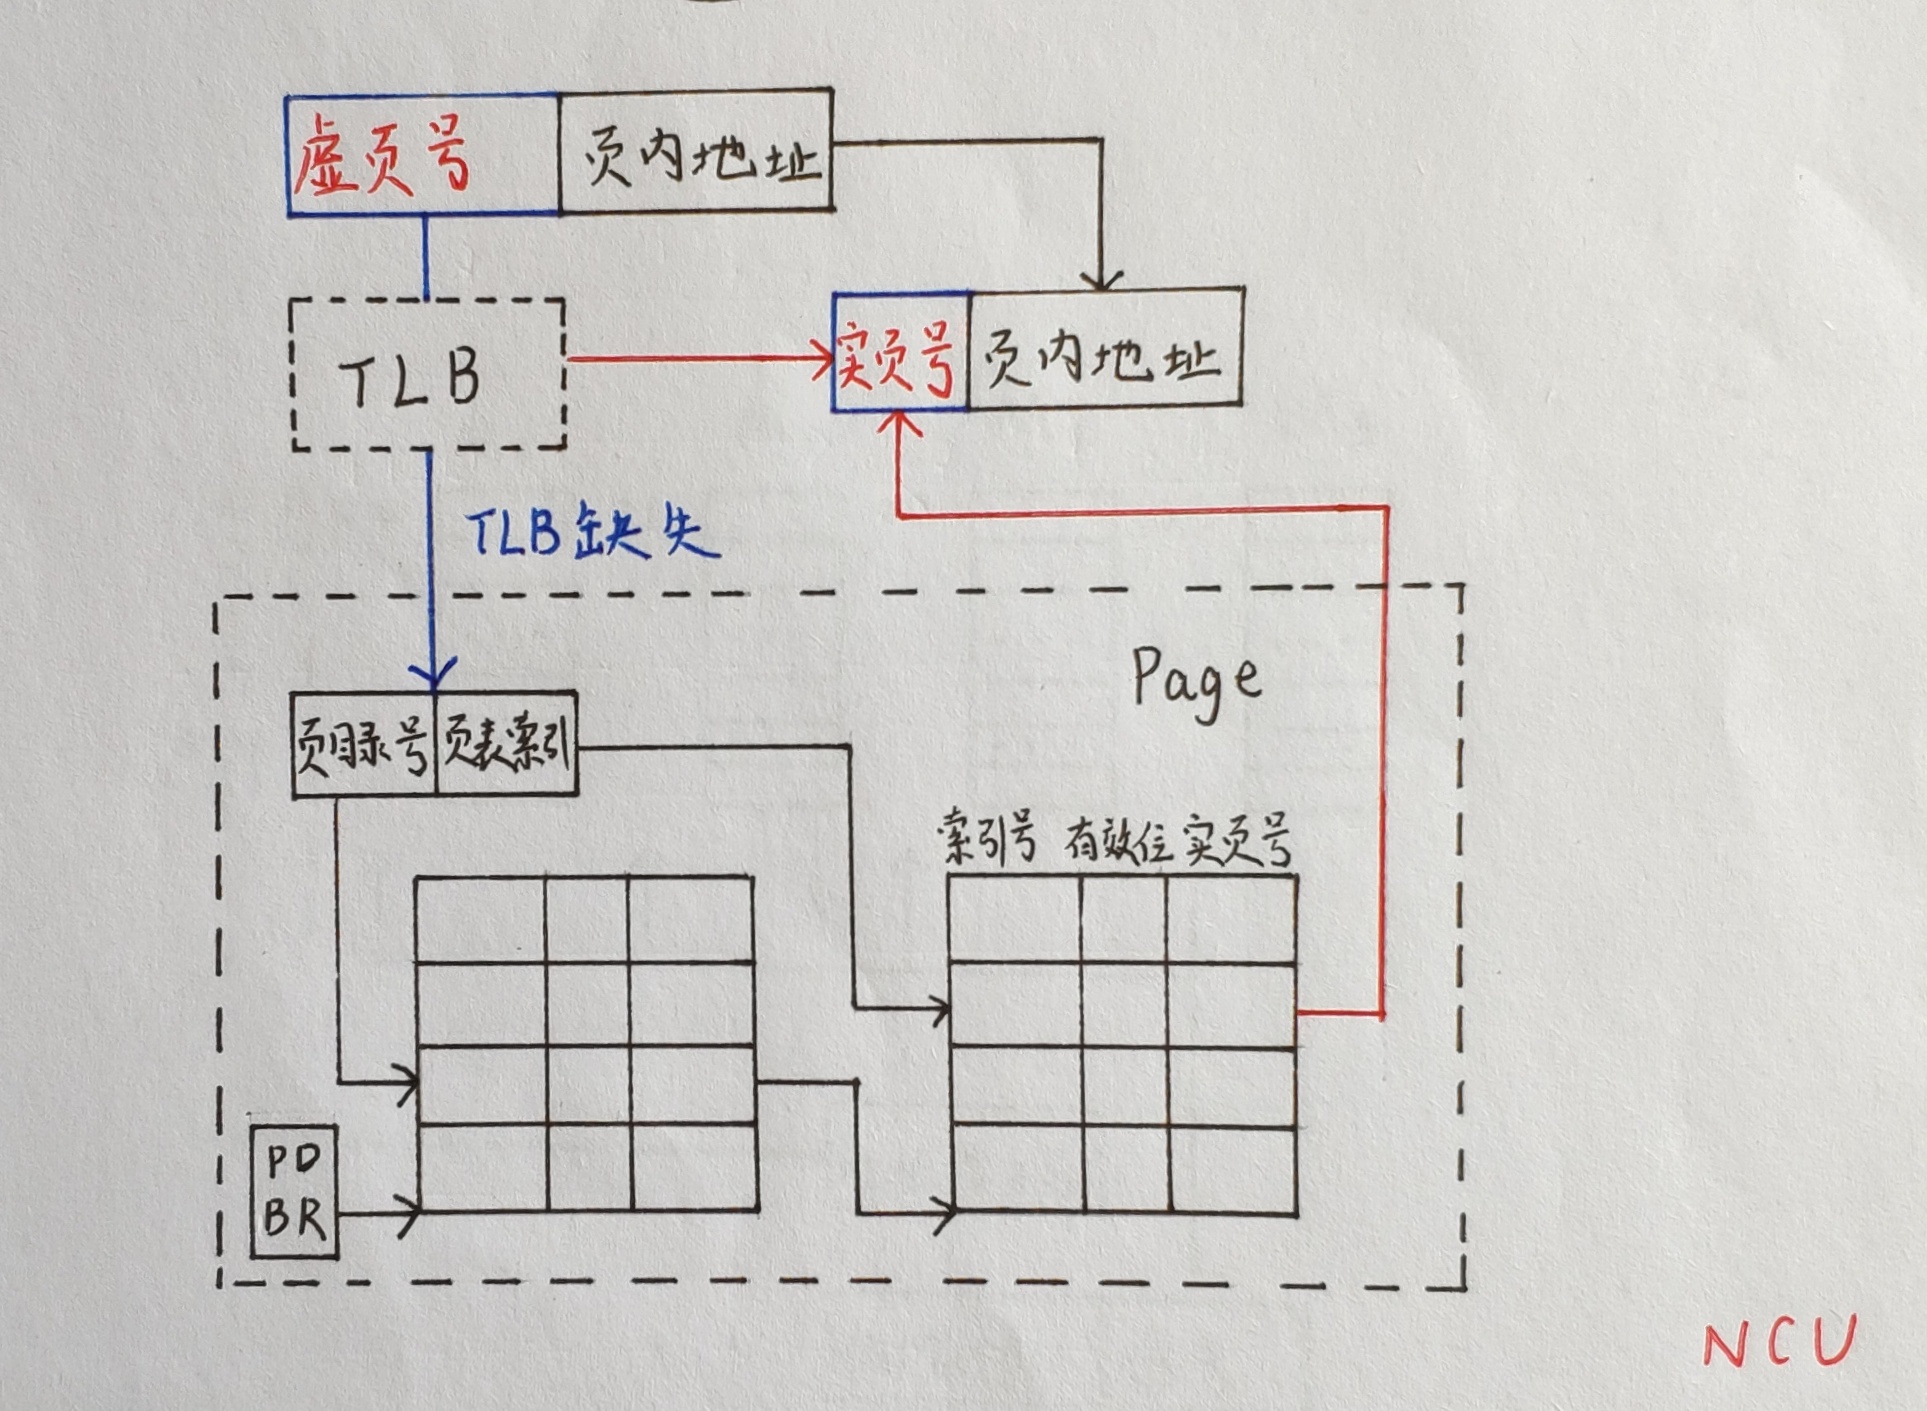 虚页号 页内地址
TLB
实页号 页内地址
TLB缺失
Page
页目录号 页表索引
索引号 有效位 实页号
PD
BR
NCU